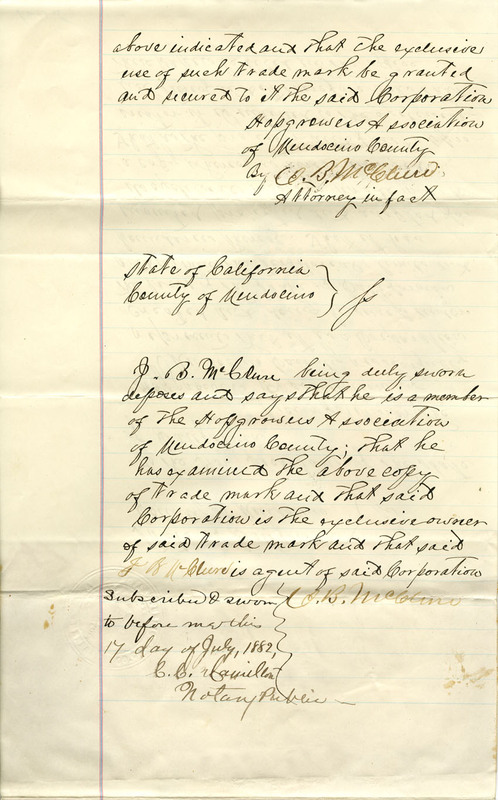 above indicated and that the exclusive
use of such trade mark be granted
and secured to it the said Corporation
Hopgrowers Association
of Mendocino County
By J. B. McClure
Attorney in fact
State of California
County of Mendocino } ss
J. B. McClure being duly sworn
deposes and says that he is a member
of the Hopgrowers Association
of Mendocino County; that he
has examined the above copy
of trade mark and that said
Corporation is the exclusive owner
of said trade mark and that said
J B McClure is agent of said Corporation
Subscribed & sworn } J. B. McClure
to before me this
17 day of July, 1882,
C. C. Hamilton
Notary Public